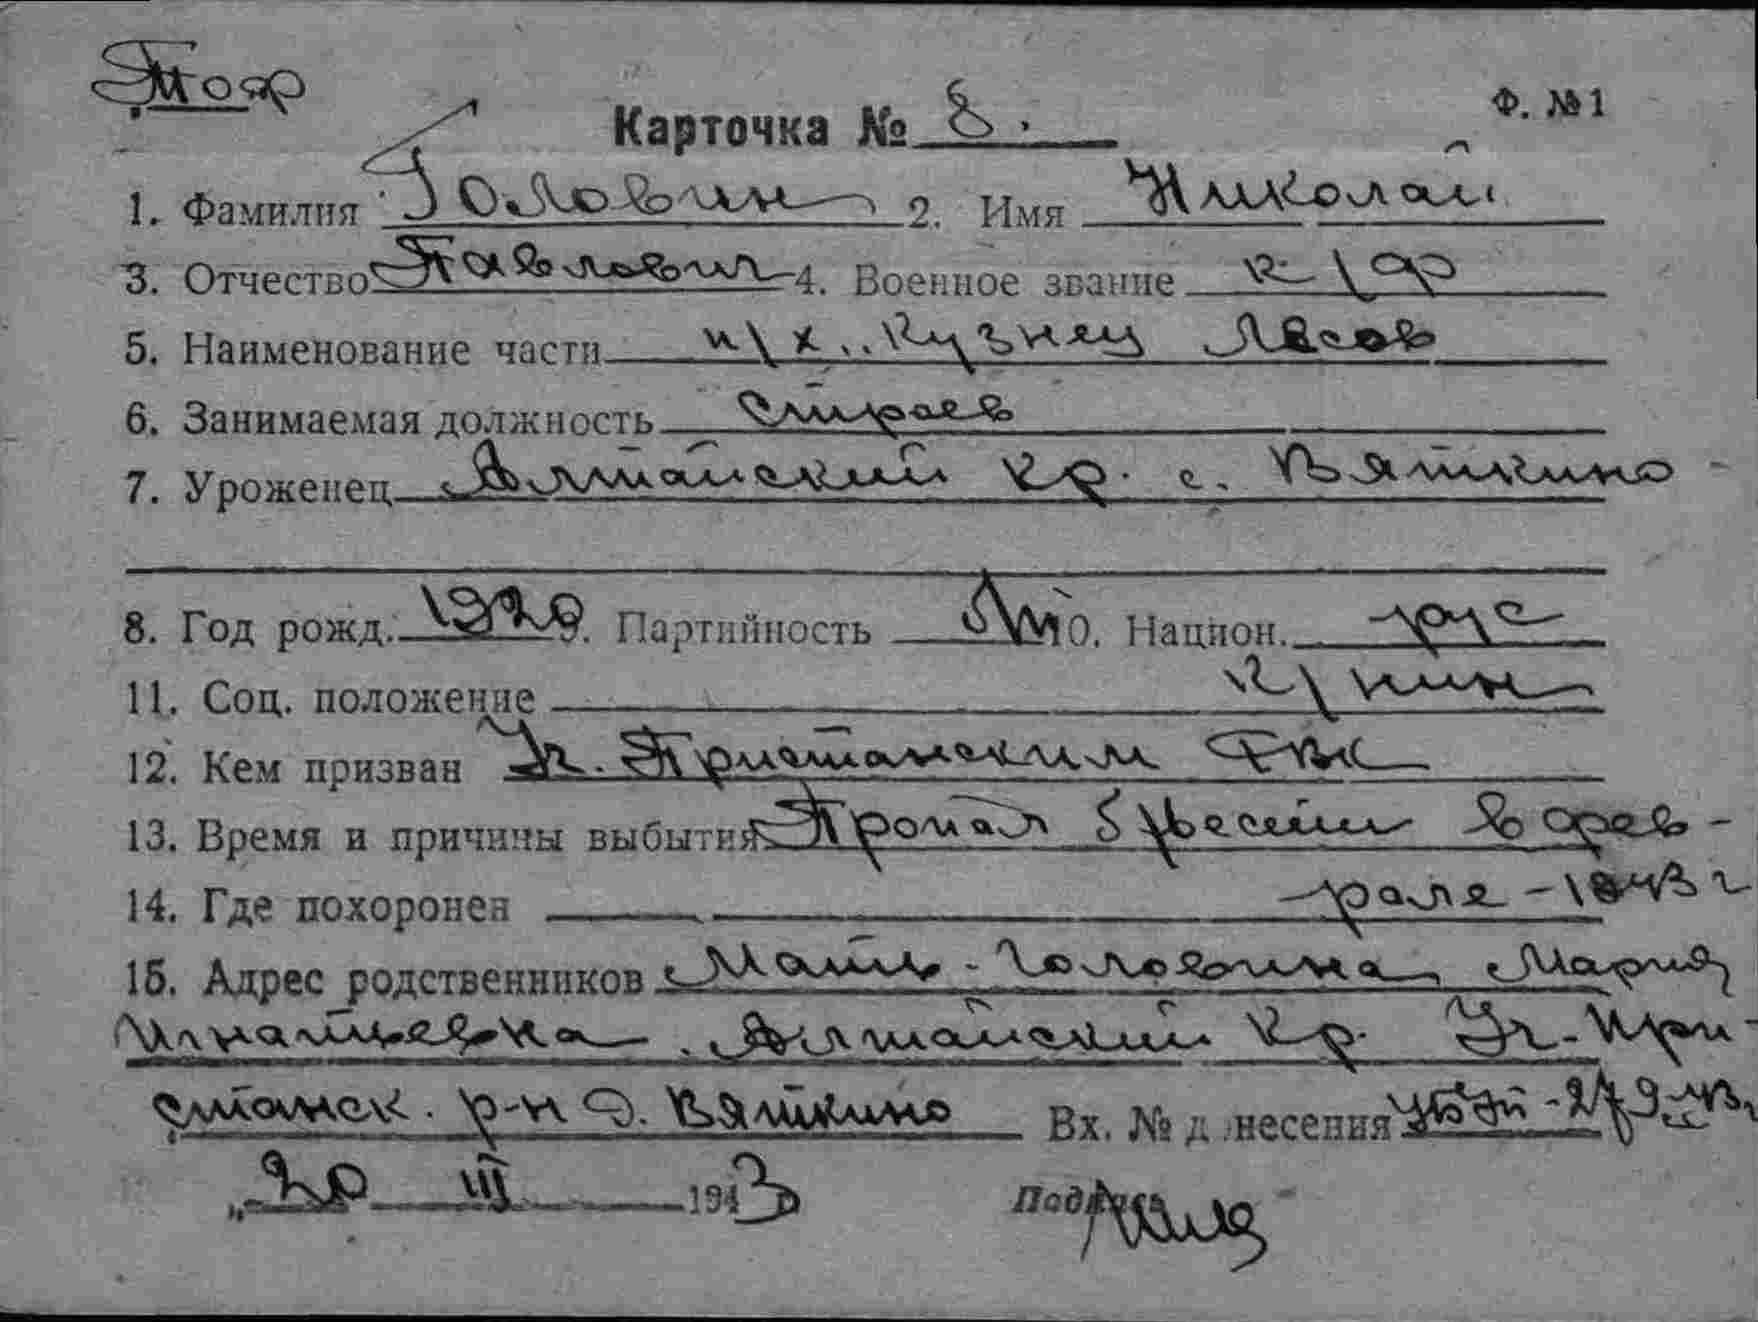 Тоф
Ф. № 1
Карточка № 8.
1. Фамилия Головин 2. Имя Николай
3. Отчество Павлович 4. Военное звание к/ф
5. Наименование части п/х „Кузнец Лесов
6. Занимаемая должность строев
7. Уроженец Алтайский кр. с. Вяткино
8. Год рожд. 1920 9. Партийность 10. Национ. рус
11. Соц. положение к/нин
12. Кем призван Уч. Пристанским РВК
13. Время и причины выбытия Пропал б/вести в фев-
14. Где похоронен рале - 1943 г
15. Адрес родственников Мать - Головина Мария
Игнатьевна. Алтайский кр. Уч-При-
станск. р-н д. Вяткино Вх. № донесения
„20 III 1943 Подпись